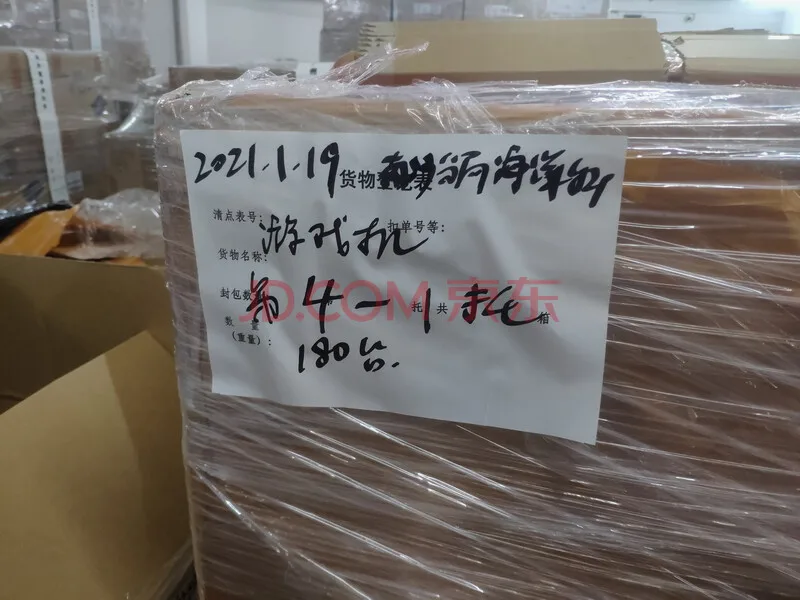 2021.1.19 货物
清点表号: 扣单号等:
货物名称: 游戏机
封包数 第4-1托 托 共 箱
JD.COM 京东
数量
(重量): 180台.